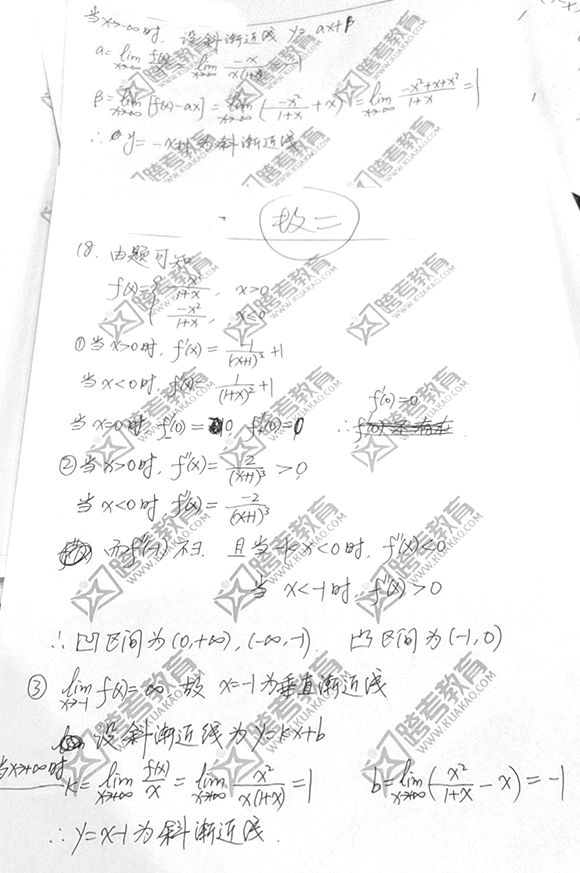 当x→-∞时, 设斜渐近线 y=ax+β
a=lim x→-∞ f(x)/x = lim x→-∞ -x/x(1+x)
β=lim x→-∞ [f(x)-ax] = lim x→-∞ (-x²/1+x + x) = lim x→-∞ -x²+x+x²/1+x = 1
∴ y=-x+1为斜渐近线
故二
18. 由题可知
f(x)={ x²/1+x , x>0
-x²/1+x , x≤0
①当x>0时, f'(x)= -1/(x+1)² +1
当x<0时, f'(x)= 1/(1+x)² +1
f'(0)=0
当x=0时, f'₋(0)=0, f'₊(0)=0 ∴
②当x>0时, f''(x)= 2/(x+1)³ >0
当x<0时 f''(x)= -2/(x+1)³
而f''(-1)不∃. 且当-1<x<0时, f''(x)<0
当 x<-1时, f''(x)>0
∴凹区间为(0,+∞), (-∞,-1). 凸区间为(-1,0)
③ lim x→-1 f(x)=∞ 故 x=-1为垂直渐近线
设斜渐近线为y=kx+b
当x→+∞时 k=lim x→+∞ f(x)/x = lim x→+∞ x²/x(1+x) =1 b=lim x→+∞ (x²/1+x - x) = -1
∴y=x-1为斜渐近线.
跨考教育
WWW.KUAKAO.COM